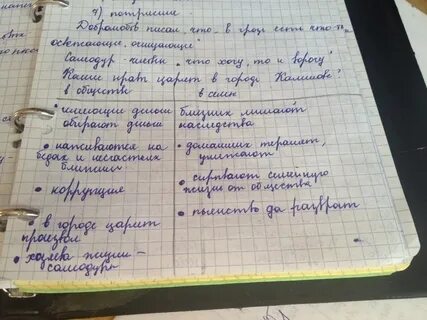 7) потрясение
Добролюбов писал, что „в грозе есть что-то
освежающее, очищающее"
Самодур - человек „что хочу, то и ворочу"
Какие нравы царят в городе Калинове?
в обществе в семье
• имеющие деньги близких лишают
обирают деньги наследства
• наживаются на • домашних тиранят,
бедах и несчастьях унижают
ближних • скрывают семейную
жизни от общества
• коррупция
• пьянство да разврат
• в городе царит
произвол
• хозяева жизни -
самодуры